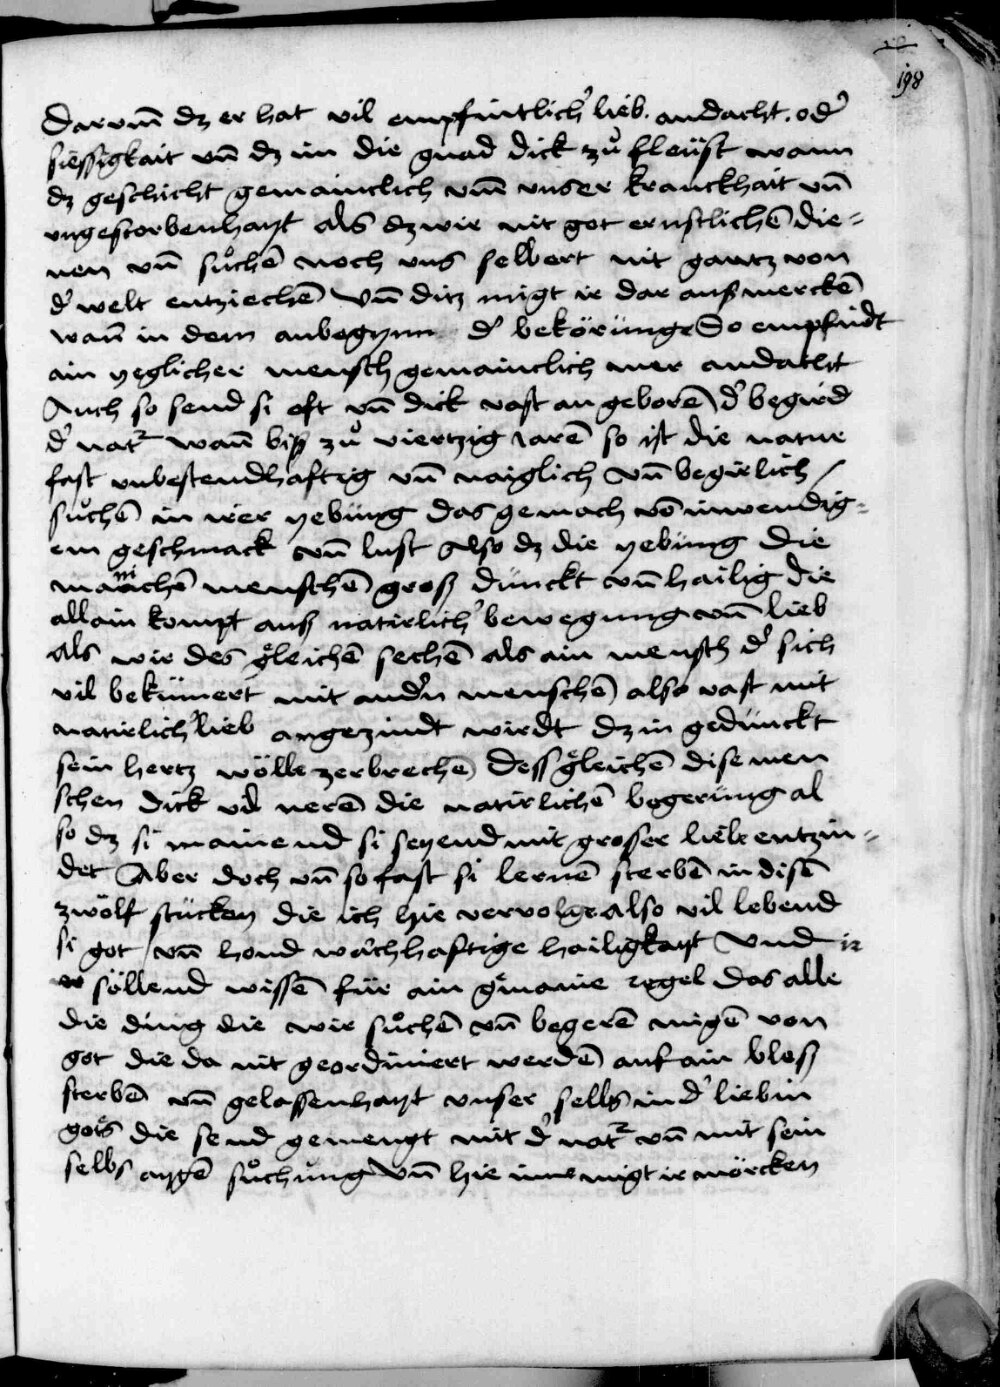 198
darvm̄ dz er hat vil empfintlich' lieb. andacht. od'
siessigkait vn̄ dz im die gnad dick zů fleüst wann
dz geschicht gemainclich vm̄ vnser kranckhait vn̄
vngestorbenhayt als dz wir nit got ernstlichē die=
nen vn̄ sůchē noch vns selbert nit gantz von
d' welt entziechē Vnd ditz migt ir dar auß merckē
wan̄ in dem anbegynn d' bekörünge So empfindt
ain yeglicher mensch gemainclich mer andacht
Auch so send si oft vn̄ dick vast an geborē d' begird
d' nat᷑ wan̄ biß zů viertzig iarē so ist die natur
fast vnbestendhaftig vn̄ naiglich vn̄ begirlich
sůchē in irer yebüng das gemach vō inwendig=
em geschmack vn̄ lust Also dz die yebüng die
manichē menschē groß dünckt vn̄ hailig die
allain kompt auß natirlich' bewegung vn̄ lieb
als wir des gleichē sechē als ain mensch d' sich
vil bekümert mit and'n menschē also vast mit
natirlich' lieb angezindt wirdt dz in gedünckt
sein hertz wölle zerbrechē Dess gleichē dise men
schen dick vil nerē die natirlichē begerüng al
so dz si mainend si seyend mit grosser liebe entzin=
det Aber doch vn̄ so fast si lernē sterbē in disē
zwölf stücken die ich hie vervolge also vil lebend
si got vn̄ hond wachhaftige hailigkayt Vnd ir
söllend wissē für ain gmaine regel das alle
die ding die wir sůchē vn̄ begerē migē von
got die da nit geordiniert werdē auf ain bloß
sterbē vn̄ gelassenhayt vnser selbs in d' lieb in
gots die send gemengt mit d' nat᷑ vn̄ mit sein
selbs aygē sůchüng Vn̄ hie inne migt ir mörcken